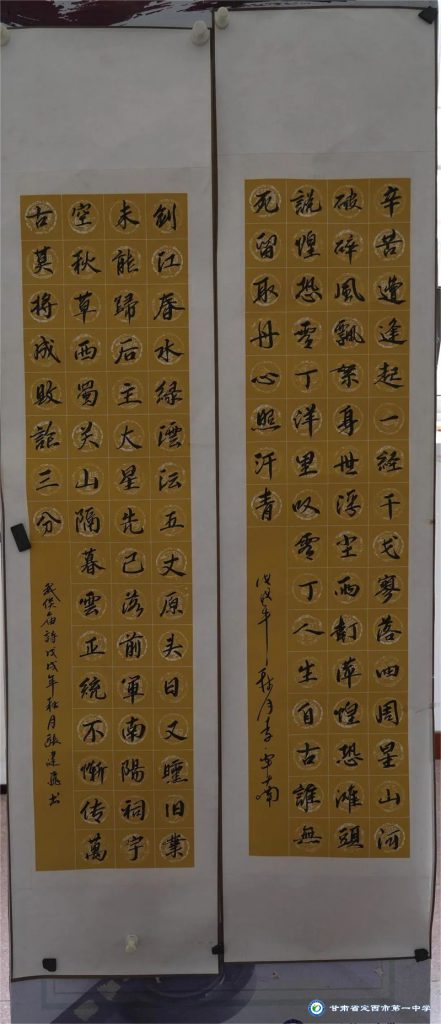 辛苦遭逢起一经干戈寥落四周星山河
破碎風飄絮身世浮尘雨打萍惶恐滩頭
說惶恐零丁洋里叹零丁人生自古誰無
死留取丹心照汗青
戊戌年秋月
剑江春水绿澐沄五丈原头日又曛旧業
未能歸后主大星先已落前軍南陽祠宇
空秋草西蜀关山隔暮雲正統不慚传萬
古莫将成敗論三分
武侯庙詩戊戌年秋月張建飛书
甘肃省定西市第一中学